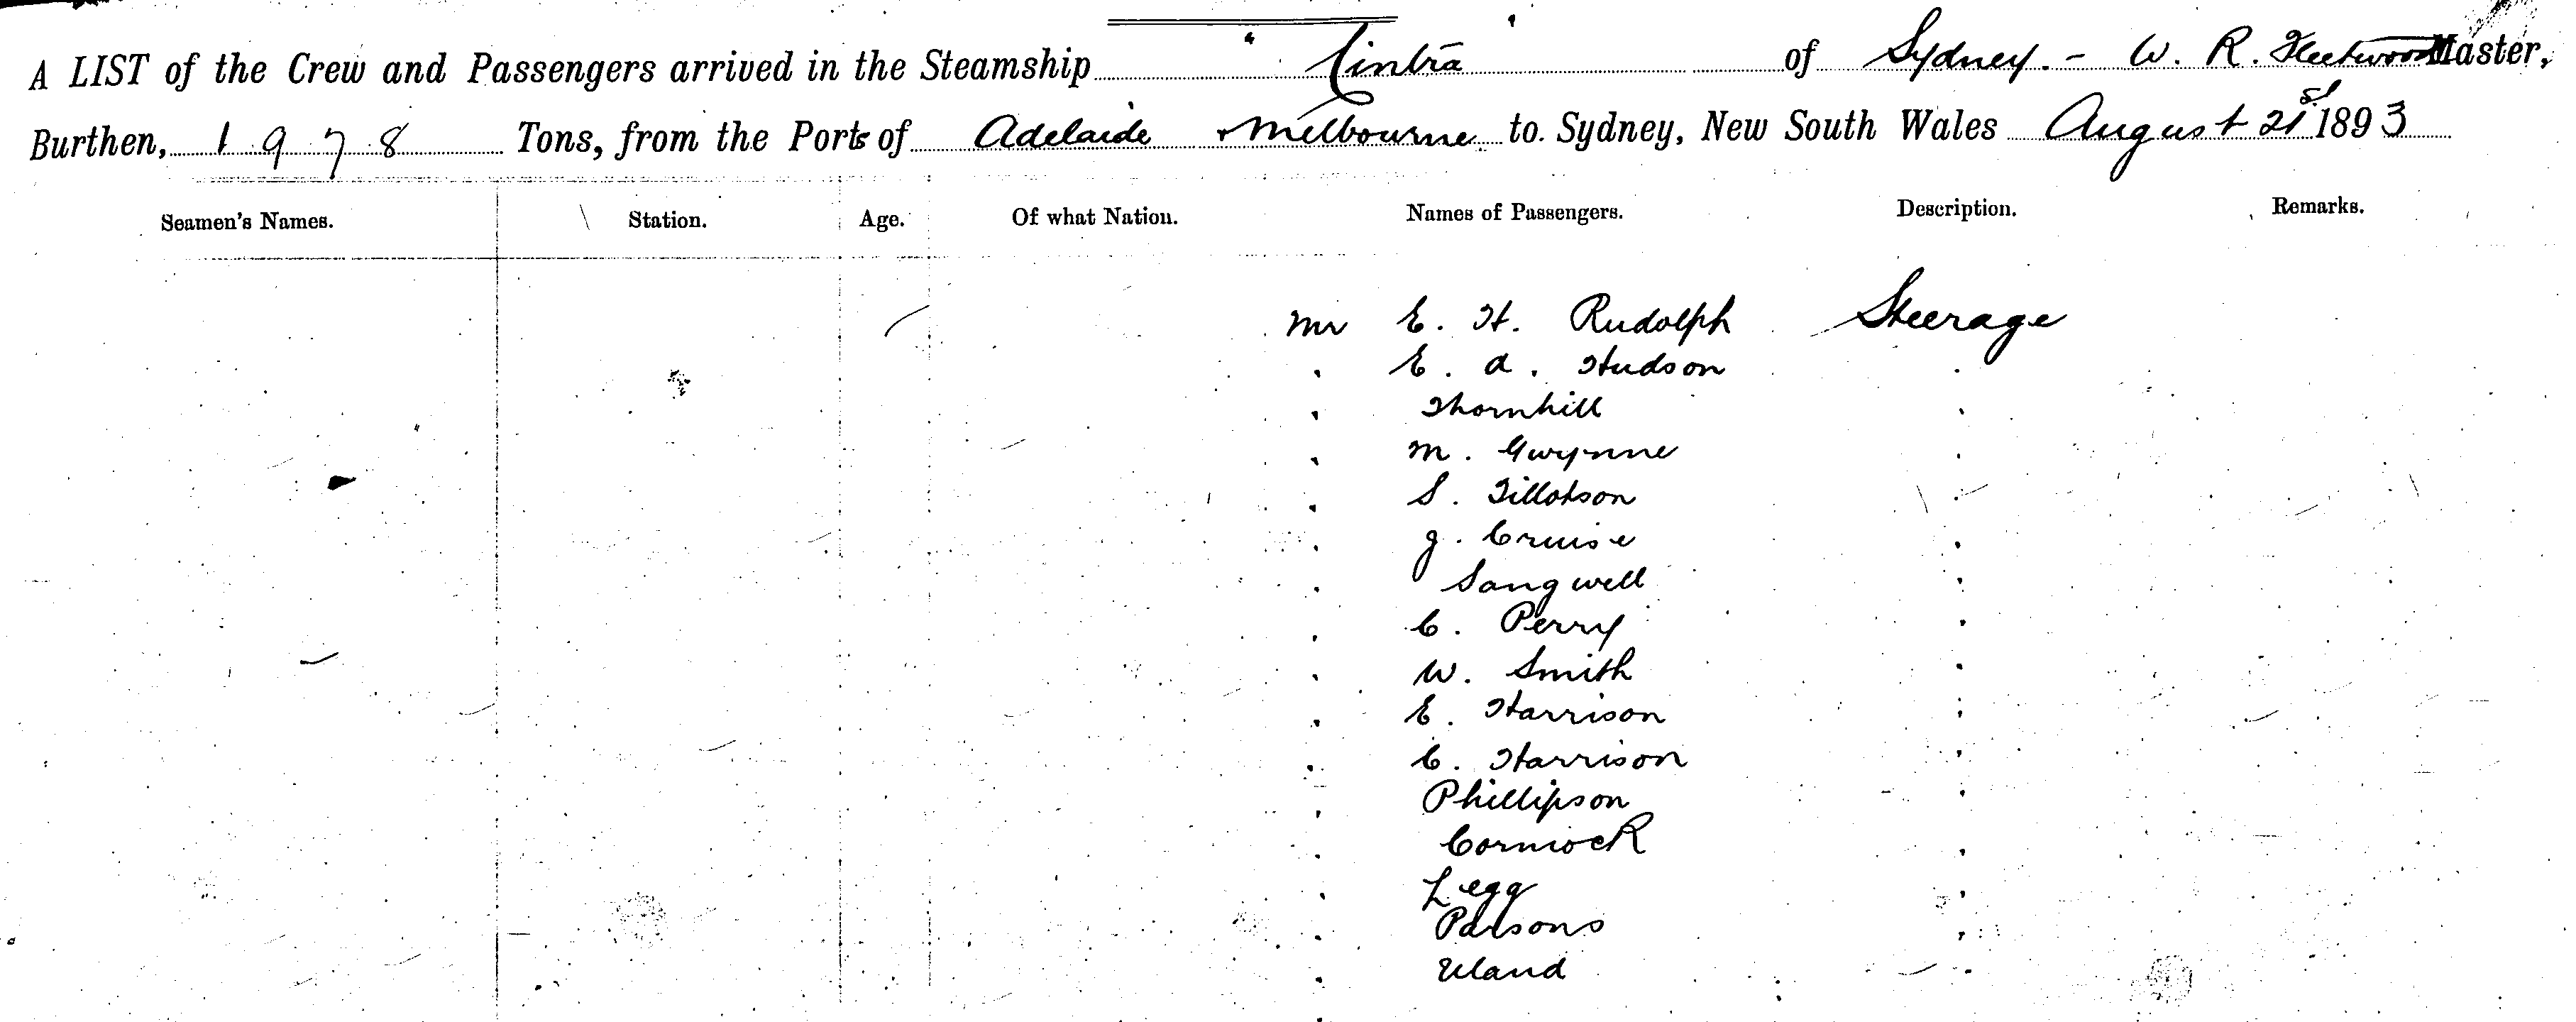 A LIST of the Crew and Passengers arrived in the Steamship "Cintra" of Sydney. - W. R. Fleetwood Master,
Burthen, 1978 Tons, from the Ports of Adelaide + Melbourne to Sydney, New South Wales August 21st 1893
Seamen's Names. Station. Age. Of what Nation. Names of Passengers. Description. Remarks.
Mr E. H. Rudolph Steerage
" E. A. Hudson "
" Thornhill "
" M. Gwynne "
" S. Tillotson "
" J. Cruise "
" Sangwell "
" C. Perry "
" W. Smith "
" E. Harrison "
" C. Harrison "
" Phillipson "
" Cormock "
" Legg "
" Parsons "
" Uland "